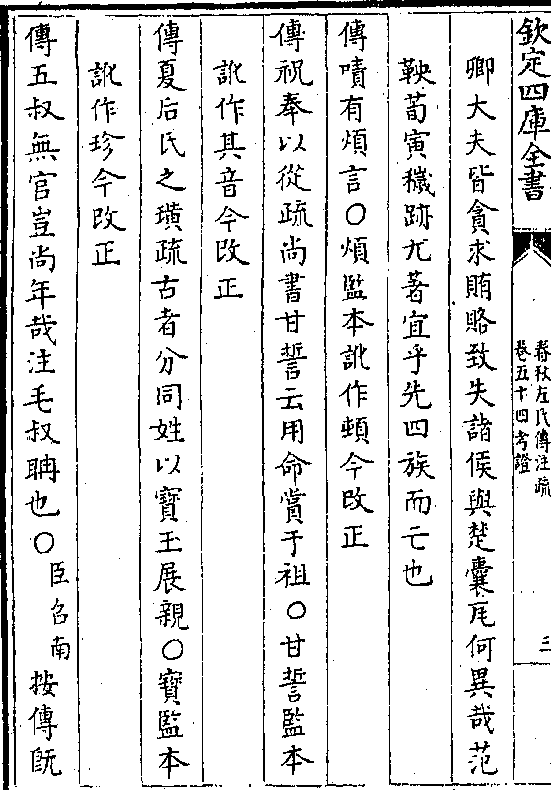 欽定四庫全書
春秋左氏傳注疏
卷五十四考證
三
卿大夫皆貪求賄賂致失諸侯與楚囊瓦何異哉范
鞅荀寅穢跡尤著宜乎先四族而亡也
傳嘖有煩言○煩監本訛作頓今改正
傳祝奉以從疏尚書甘誓云用命賞于祖○甘誓監本
訛作其音今改正
傳夏后氏之璜疏古者分同姓以寶玉展親○寶監本
訛作珍今改正
傳五叔無官豈尚年哉注毛叔聃也○臣召南按傳既